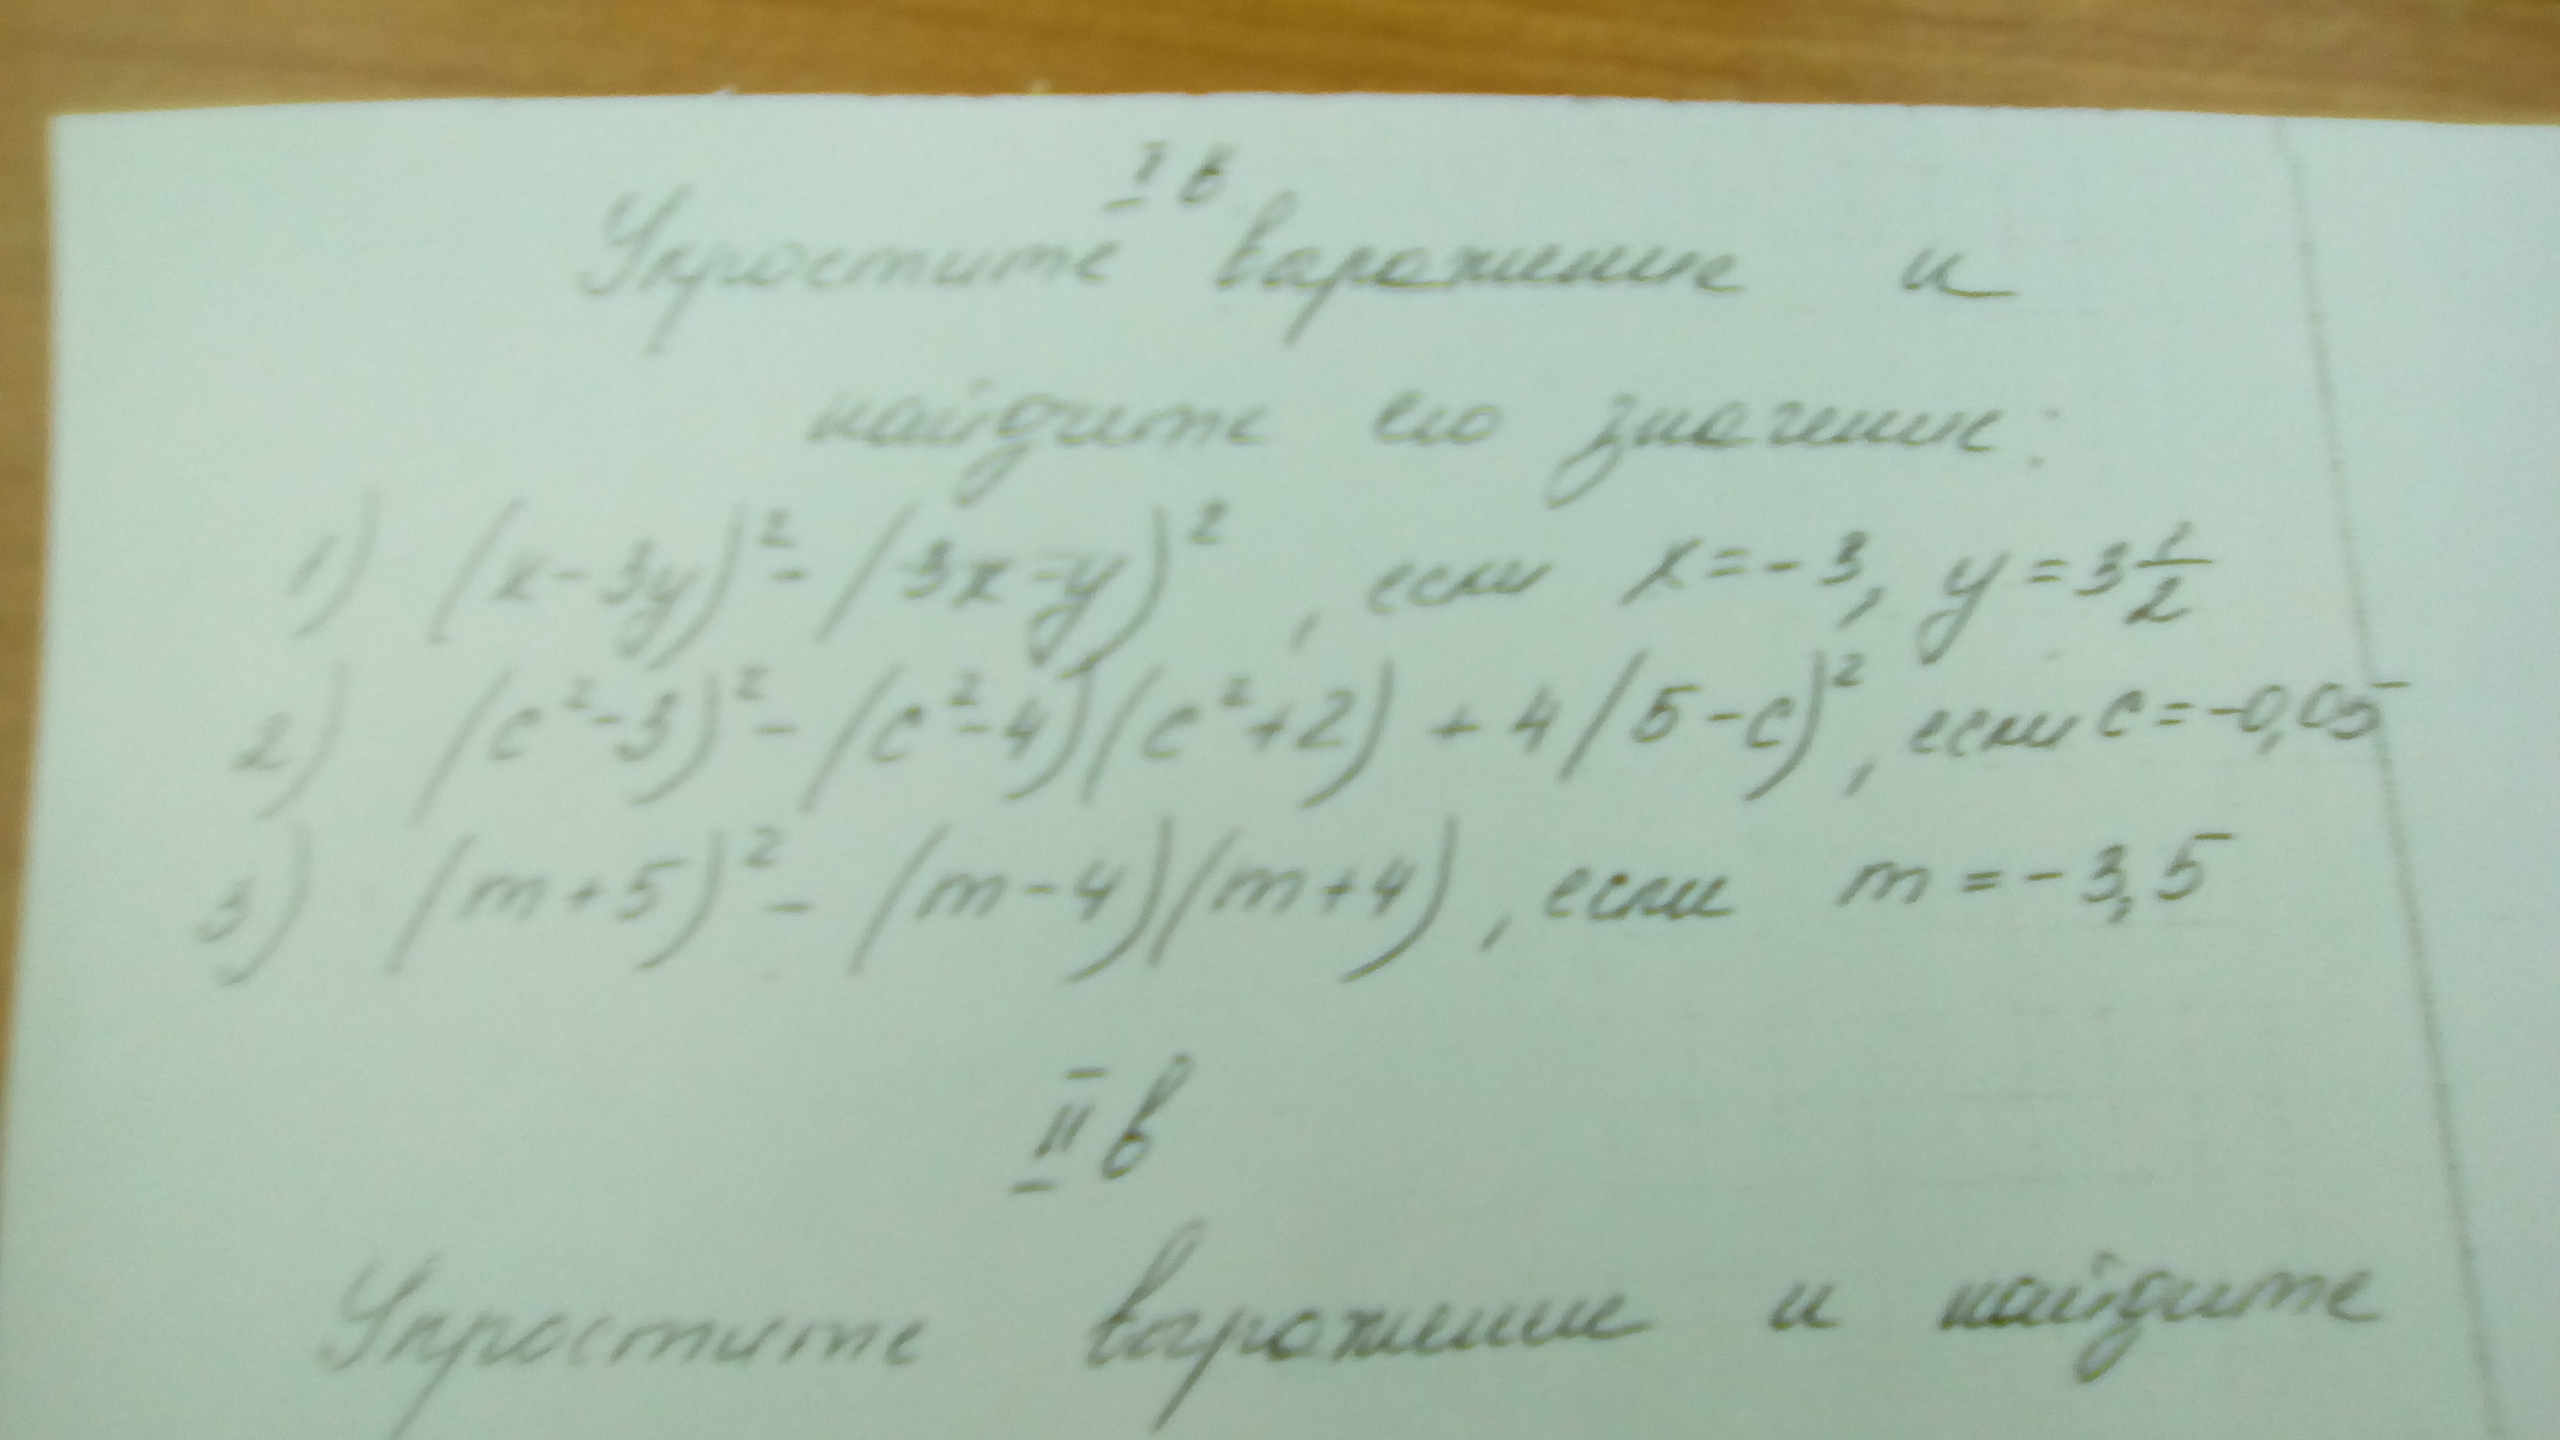 I в
Упростите выражение и
найдите его значение:
1) (x-3y)² - (3x-y)², если x=-3, y=3 1/2
2) (c²-3)² - (c²-4)(c²+2) + 4(5-c)², если c=-0,05
3) (m+5)² - (m-4)(m+4), если m=-3,5
II в
Упростите выражение и найдите